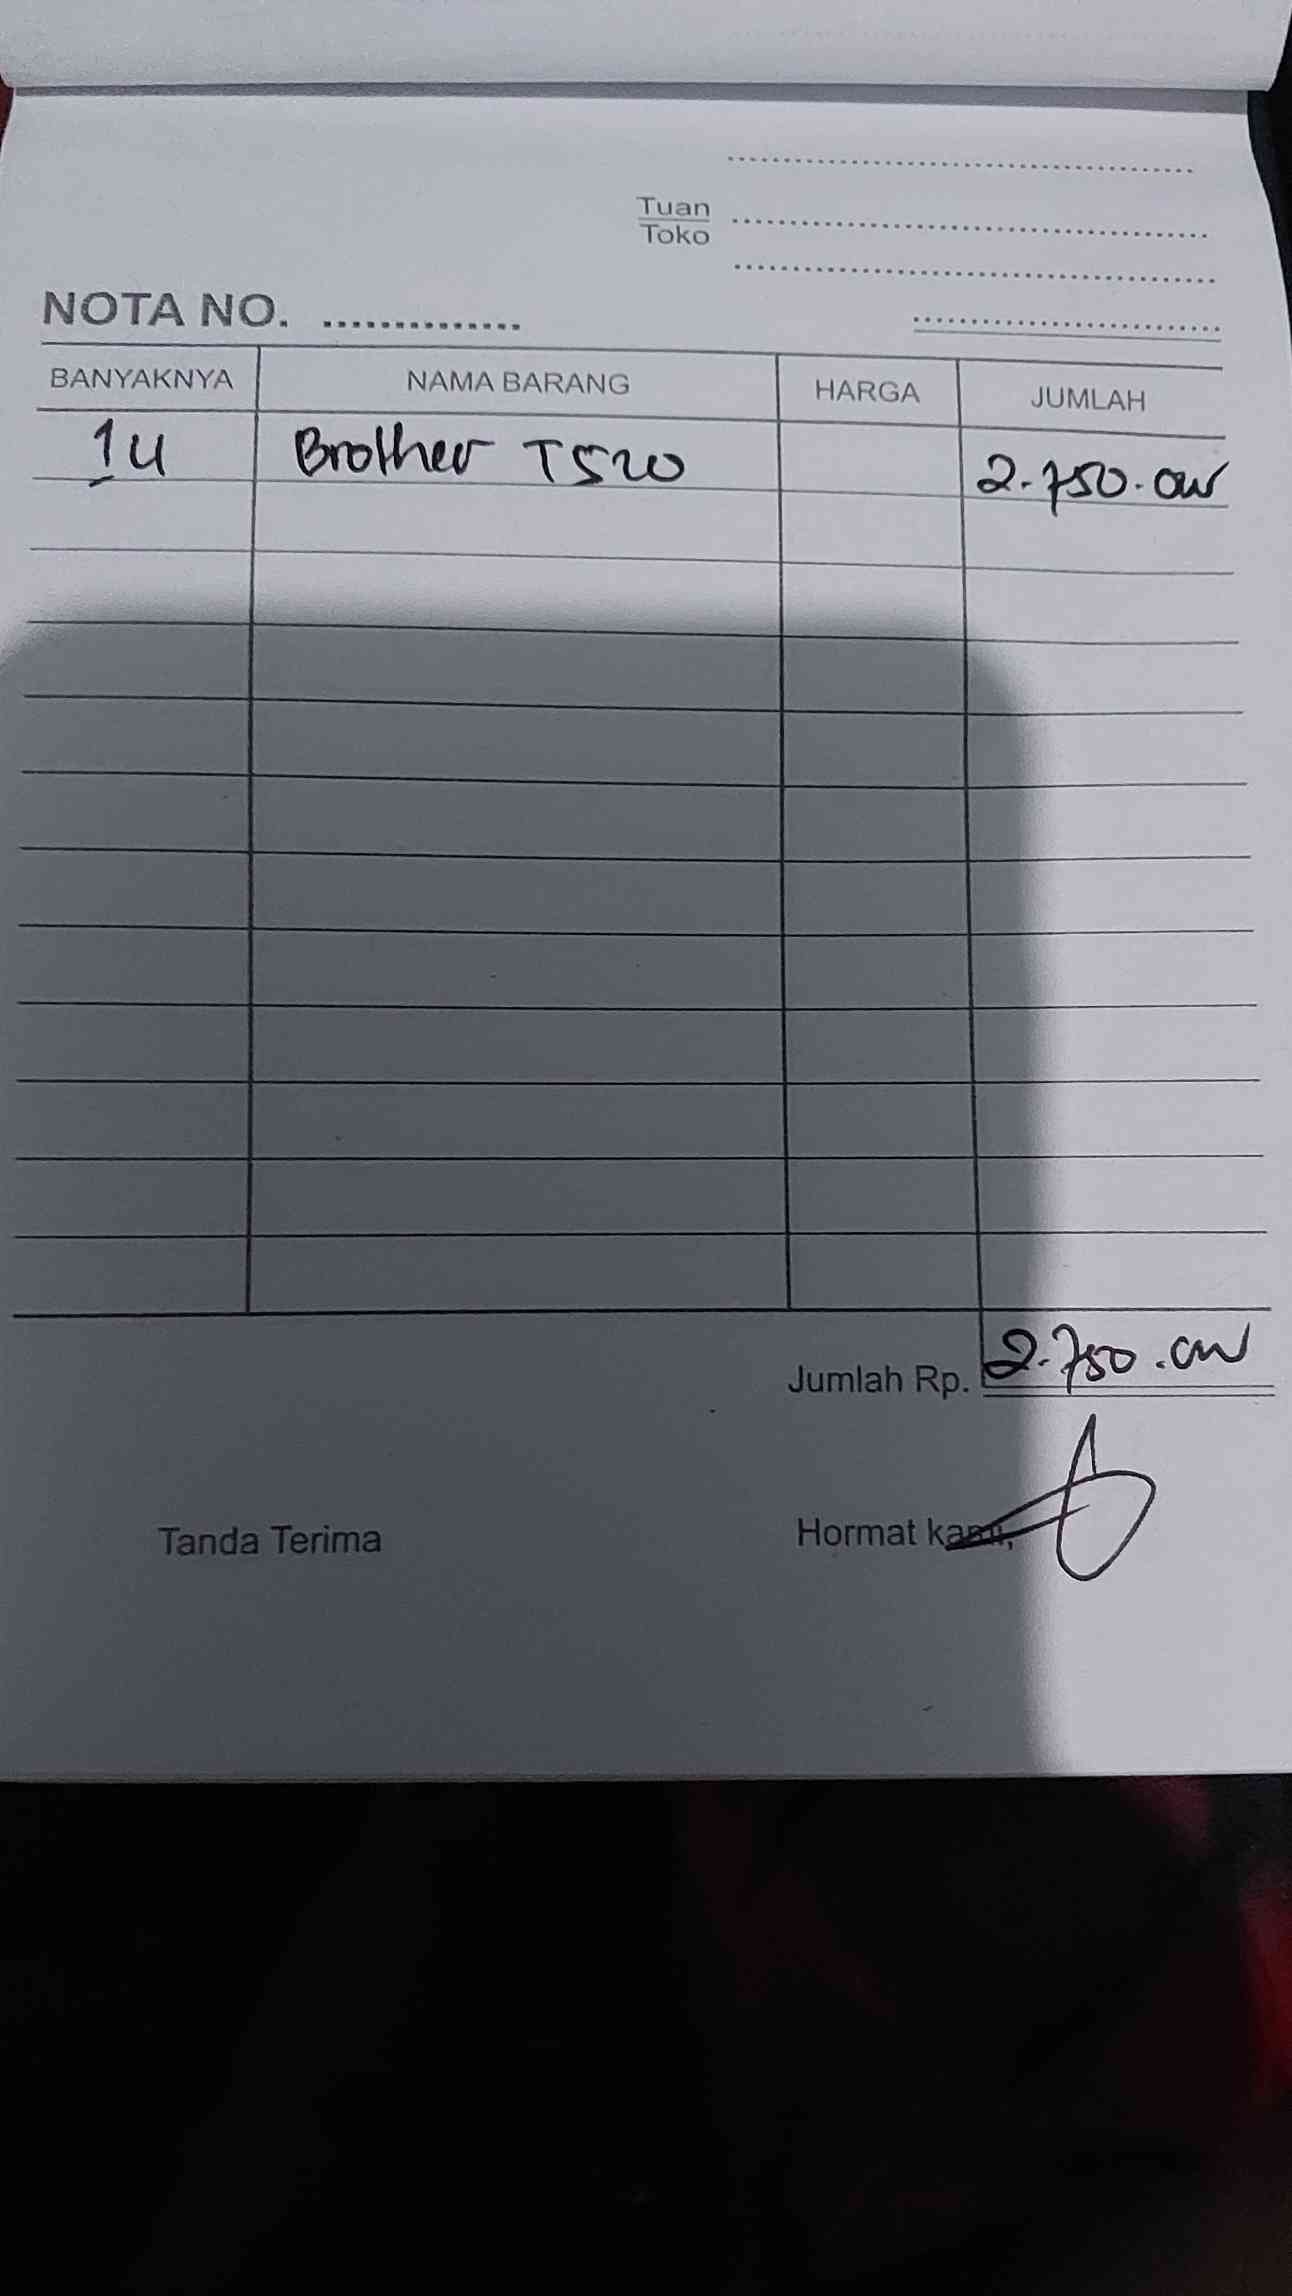 Tuan
Toko
NOTA NO. ..............
BANYAKNYA NAMA BARANG HARGA JUMLAH
1 U Brother T520 2.750.000
Jumlah Rp. 2.750.000
Tanda Terima Hormat kami,